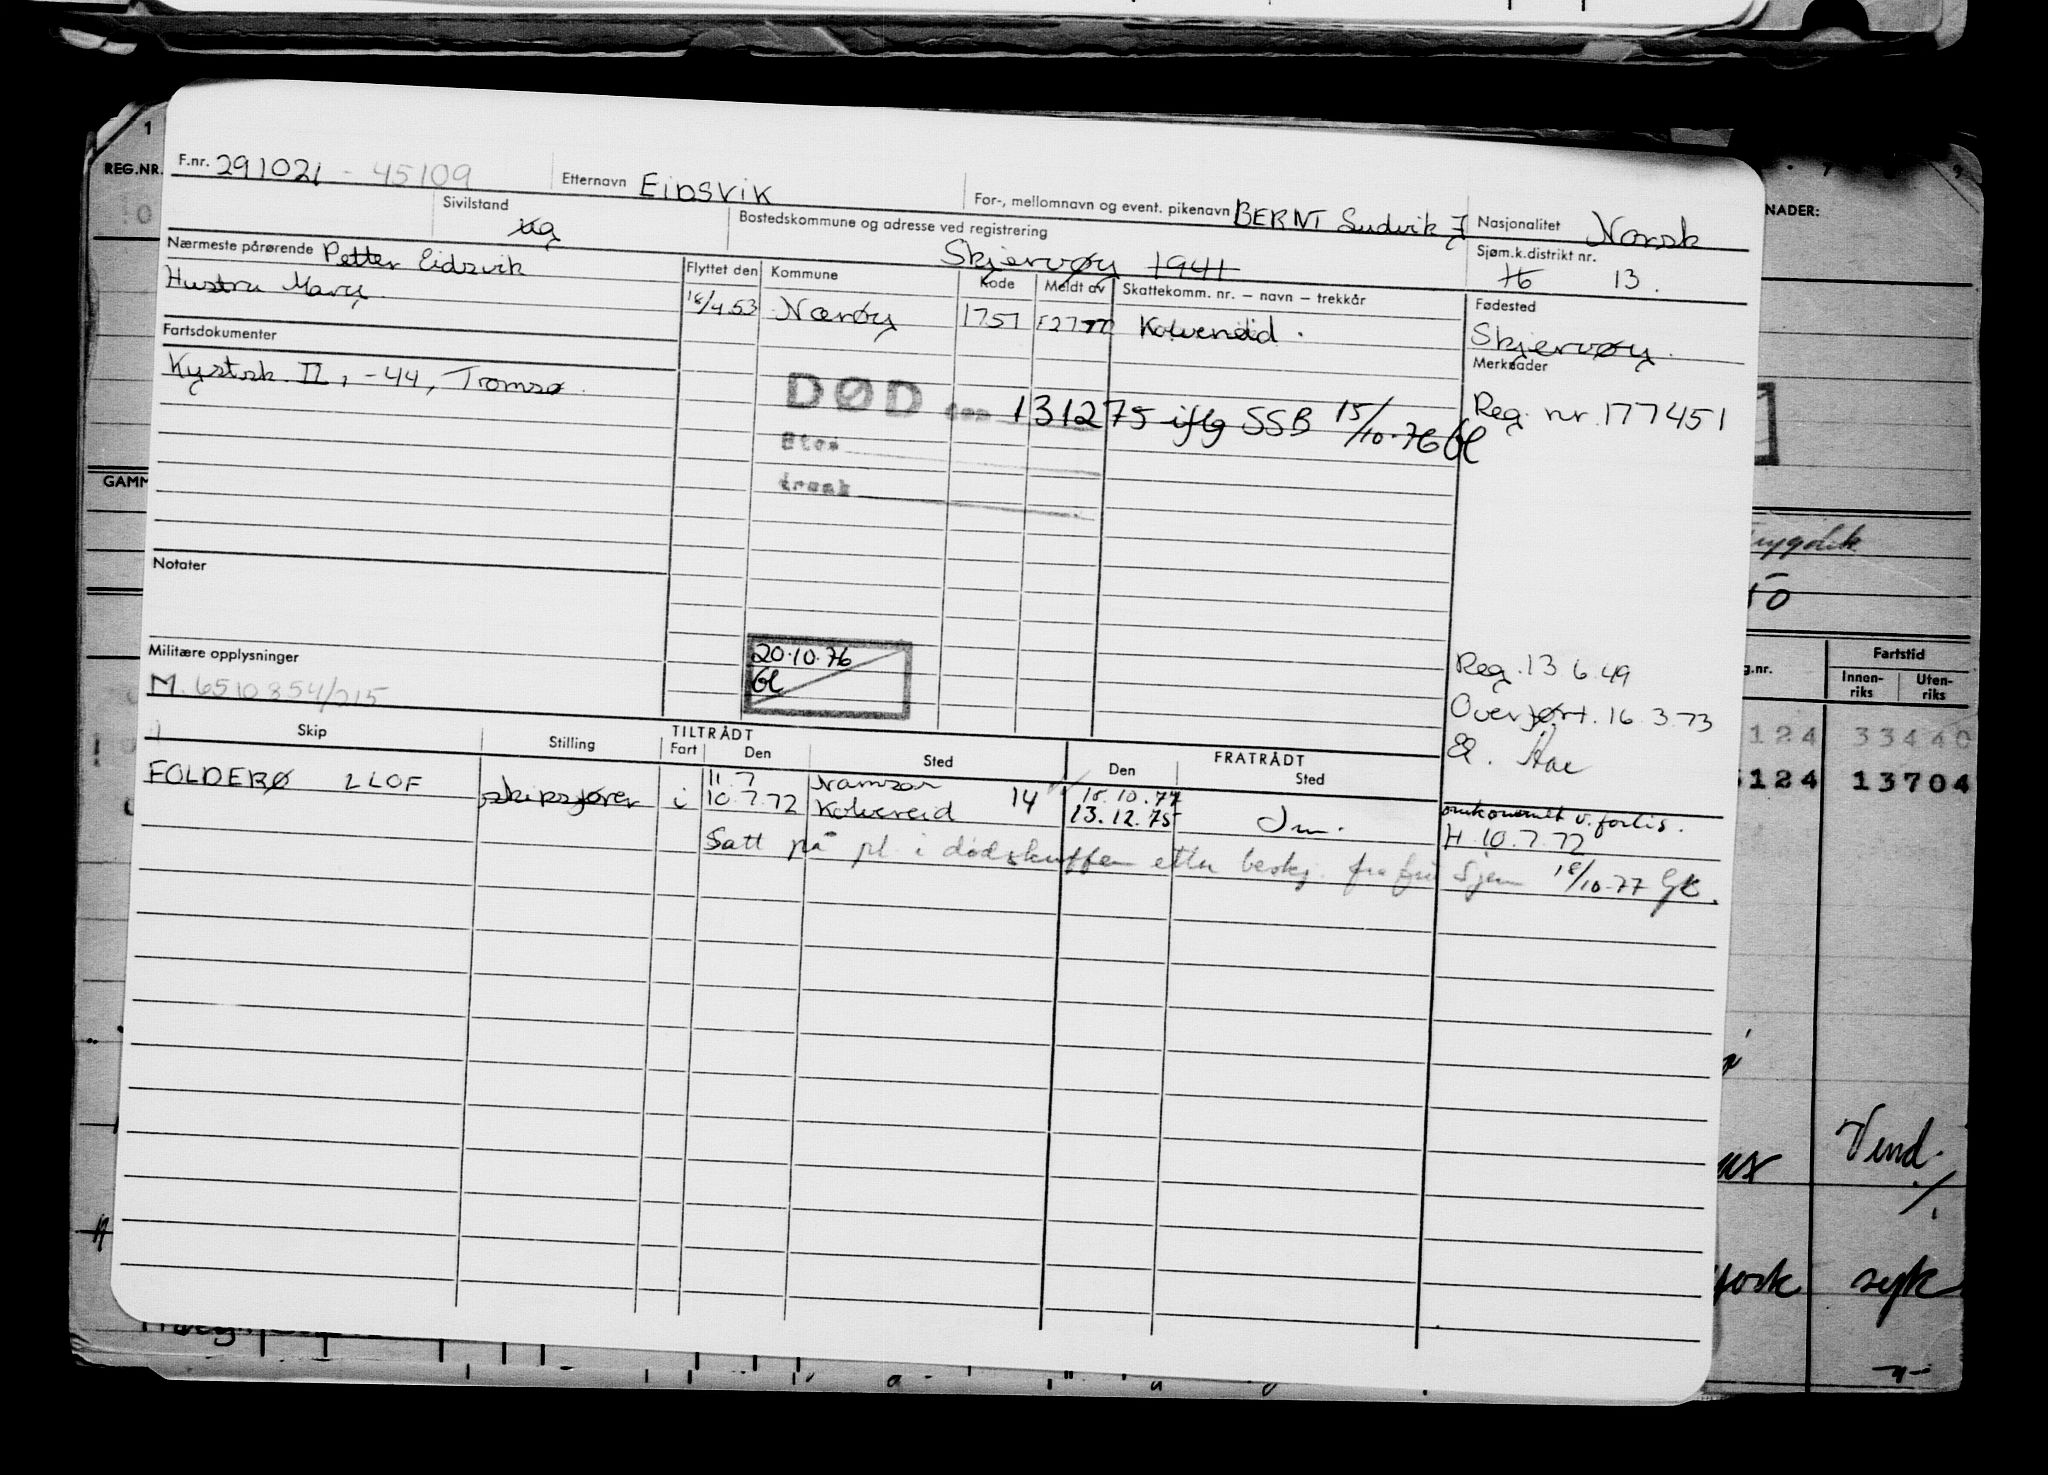 1
REG.NR.
F.nr. 291021 - 45109
Etternavn EIDSVIK
For-, mellomnavn og event. pikenavn BERNT Ludvik J
Nasjonalitet Norsk
NADER:
Sivilstand ug
Bostedskommune og adresse ved registrering
Skjervøy 1941
Sjøm.k.distrikt nr.
H 13.
Nærmeste pårørende Petter Eidsvik
Hustru Mary.
Flyttet den Kommune Kode Meldt av Skattekomm. nr. – navn – trekkår
18/4.53 Nærøy 1751 Kolvereid.
Fødested
Skjervøy.
Fartsdokumenter
Kystsk. II, -44, Tromsø.
Merknader
Reg. nr. 177451
DØD den 131275 iflg SSB 15/10.76 GL
Sted
årsak
GAMM
Notater
Militære opplysninger
M. 6510854/215
20.10.76
GL
Reg. 13 6.49
Overført. 16.3.73
g.nr.
Fartstid
Innen-riks Uten-riks
124 33440
124 13704
Skip Stilling TILTRÅDT Fart Den Sted FRATRÅDT Den Sted
11.7 Namsos 14 18.10.77
FOLDERØ LLOF skipsfører i 10.7.72 Kolvereid 13.12.75
H. 10.7.72
Satt på pl. i dødskuffen etter beskj. fra 18/10.77 GK.
Vind.
syk